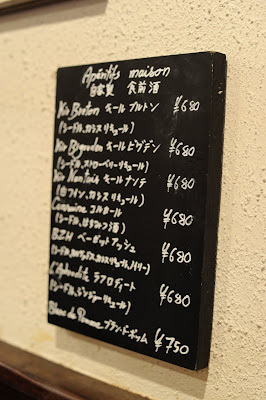 Apéritifs maison
自家製 食前酒
Kir Breton キール ブルトン ¥680
(シードル、カシス リキュール)
Kir Bigouden キール ビグデン ¥680
(シードル、ストロベリーリキュール)
Kir Nantais キール ナンテ ¥680
(白ワイン、カシス リキュール)
コルネール ¥680
BZH ベーゼットアッシュ ¥680
L'Aphrodite ラフロディート ¥680
(シードル、ジンジャーリキュール)
Blanc de Pomme ブラン・ド・ポム ¥750